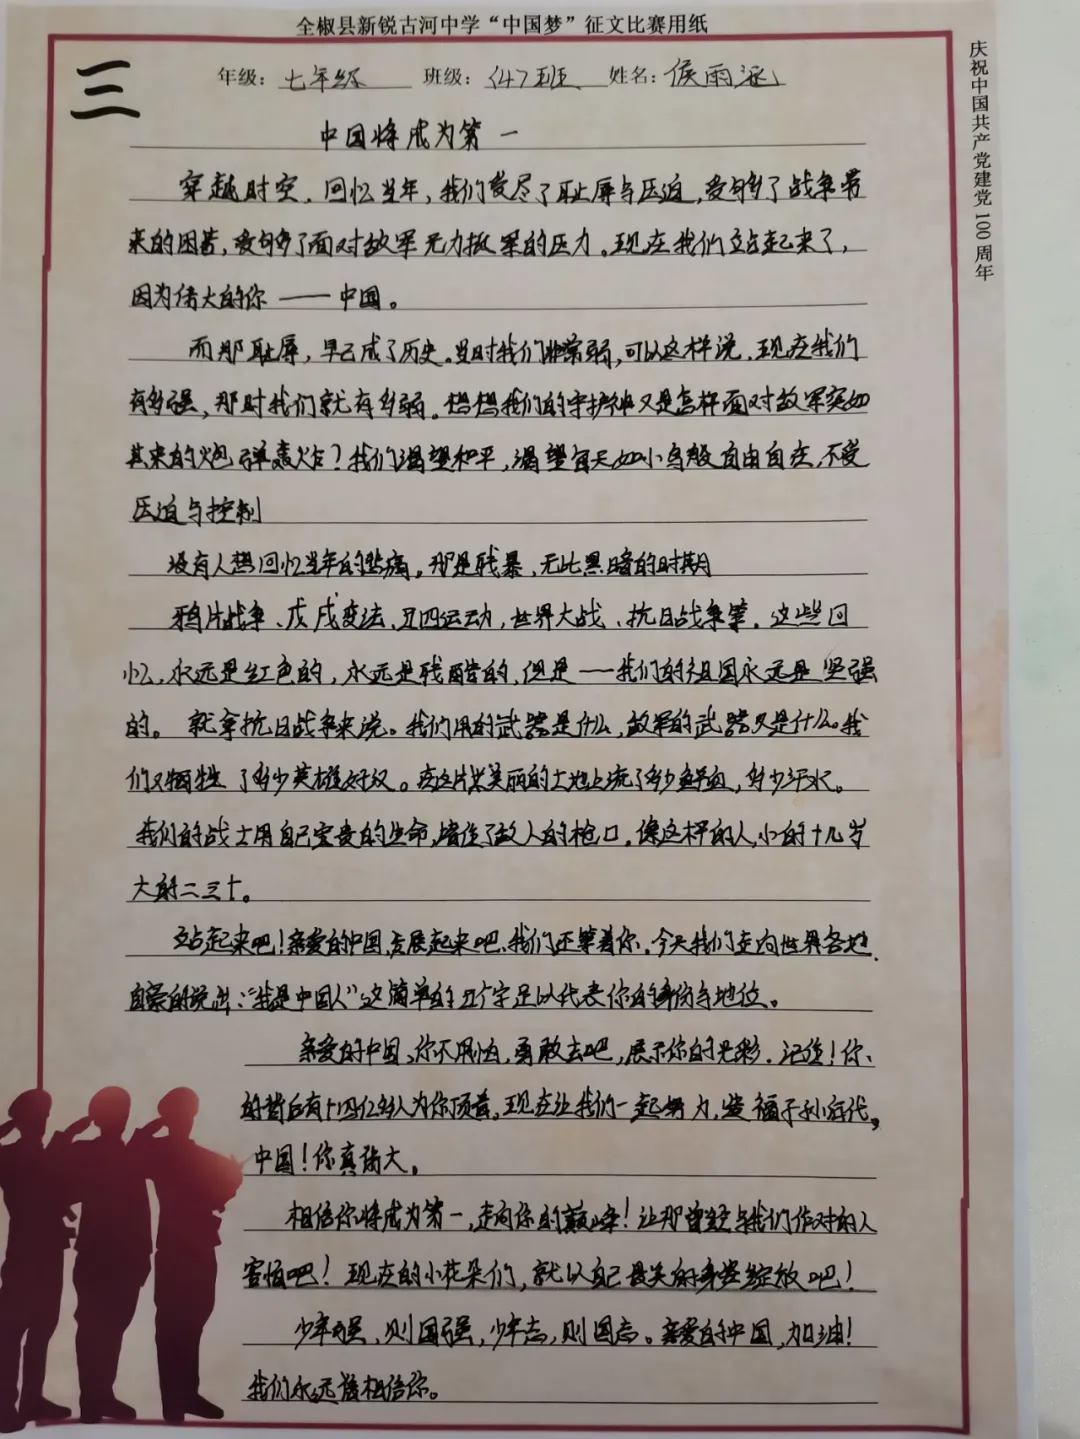 全椒县新锐古河中学“中国梦”征文比赛用纸
三
年级：七年级 班级：(4)班 姓名：侯雨涵
庆祝中国共产党建党100周年
中国将成为第一
穿越时空，回忆当年，我们受尽了耻辱与压迫，受够了战争带
来的困苦，受够了面对敌军无力撤军的压力。现在我们立站起来了，
因为伟大的你——中国。
而那耻辱，早已成了历史。当时我们非常弱，可以这样说，现在我们
有多强，那时我们就有多弱。想想我们的守护神又是怎样面对敌军突如
其来的炮弹轰炸？我们渴望和平，渴望每天如小鸟般自由自在，不受
压迫与控制
没有人想回忆当年的悲痛，那是残暴，无比黑暗的时期
鸦片战争、戊戌变法、五四运动，世界大战、抗日战争等，这些回
忆，永远是红色的，永远是残酷的，但是——我们的祖国永远是坚强
的。就拿抗日战争来说。我们用的武器是什么，敌军的武器又是什么。我
们又牺牲了多少英雄好汉。在这片美丽的土地上流了多少鲜血，多少汗水。
我们的战士用自己宝贵的生命，堵住了敌人的枪口，像这样的人，小的十几岁
大的二三十。
站起来吧！亲爱的中国，发展起来吧，我们还等着你，今天我们走向世界各地，
自豪的说出：“我是中国人”这简单的五个字足以代表你的身份与地位。
亲爱的中国，你不用怕，勇敢去吧，展示你的光彩，记住！你
的背后有十四亿多人为你顶着，现在让我们一起努力，造福子孙后代，
中国！你真伟大。
相信你将成为第一，走向你的巅峰！让那曾经与我们作对的人
害怕吧！现在的小花朵们，就以自己最美的身姿绽放吧！
少年强，则国强，少年志，则国志。亲爱的中国，加油！
我们永远相信你。